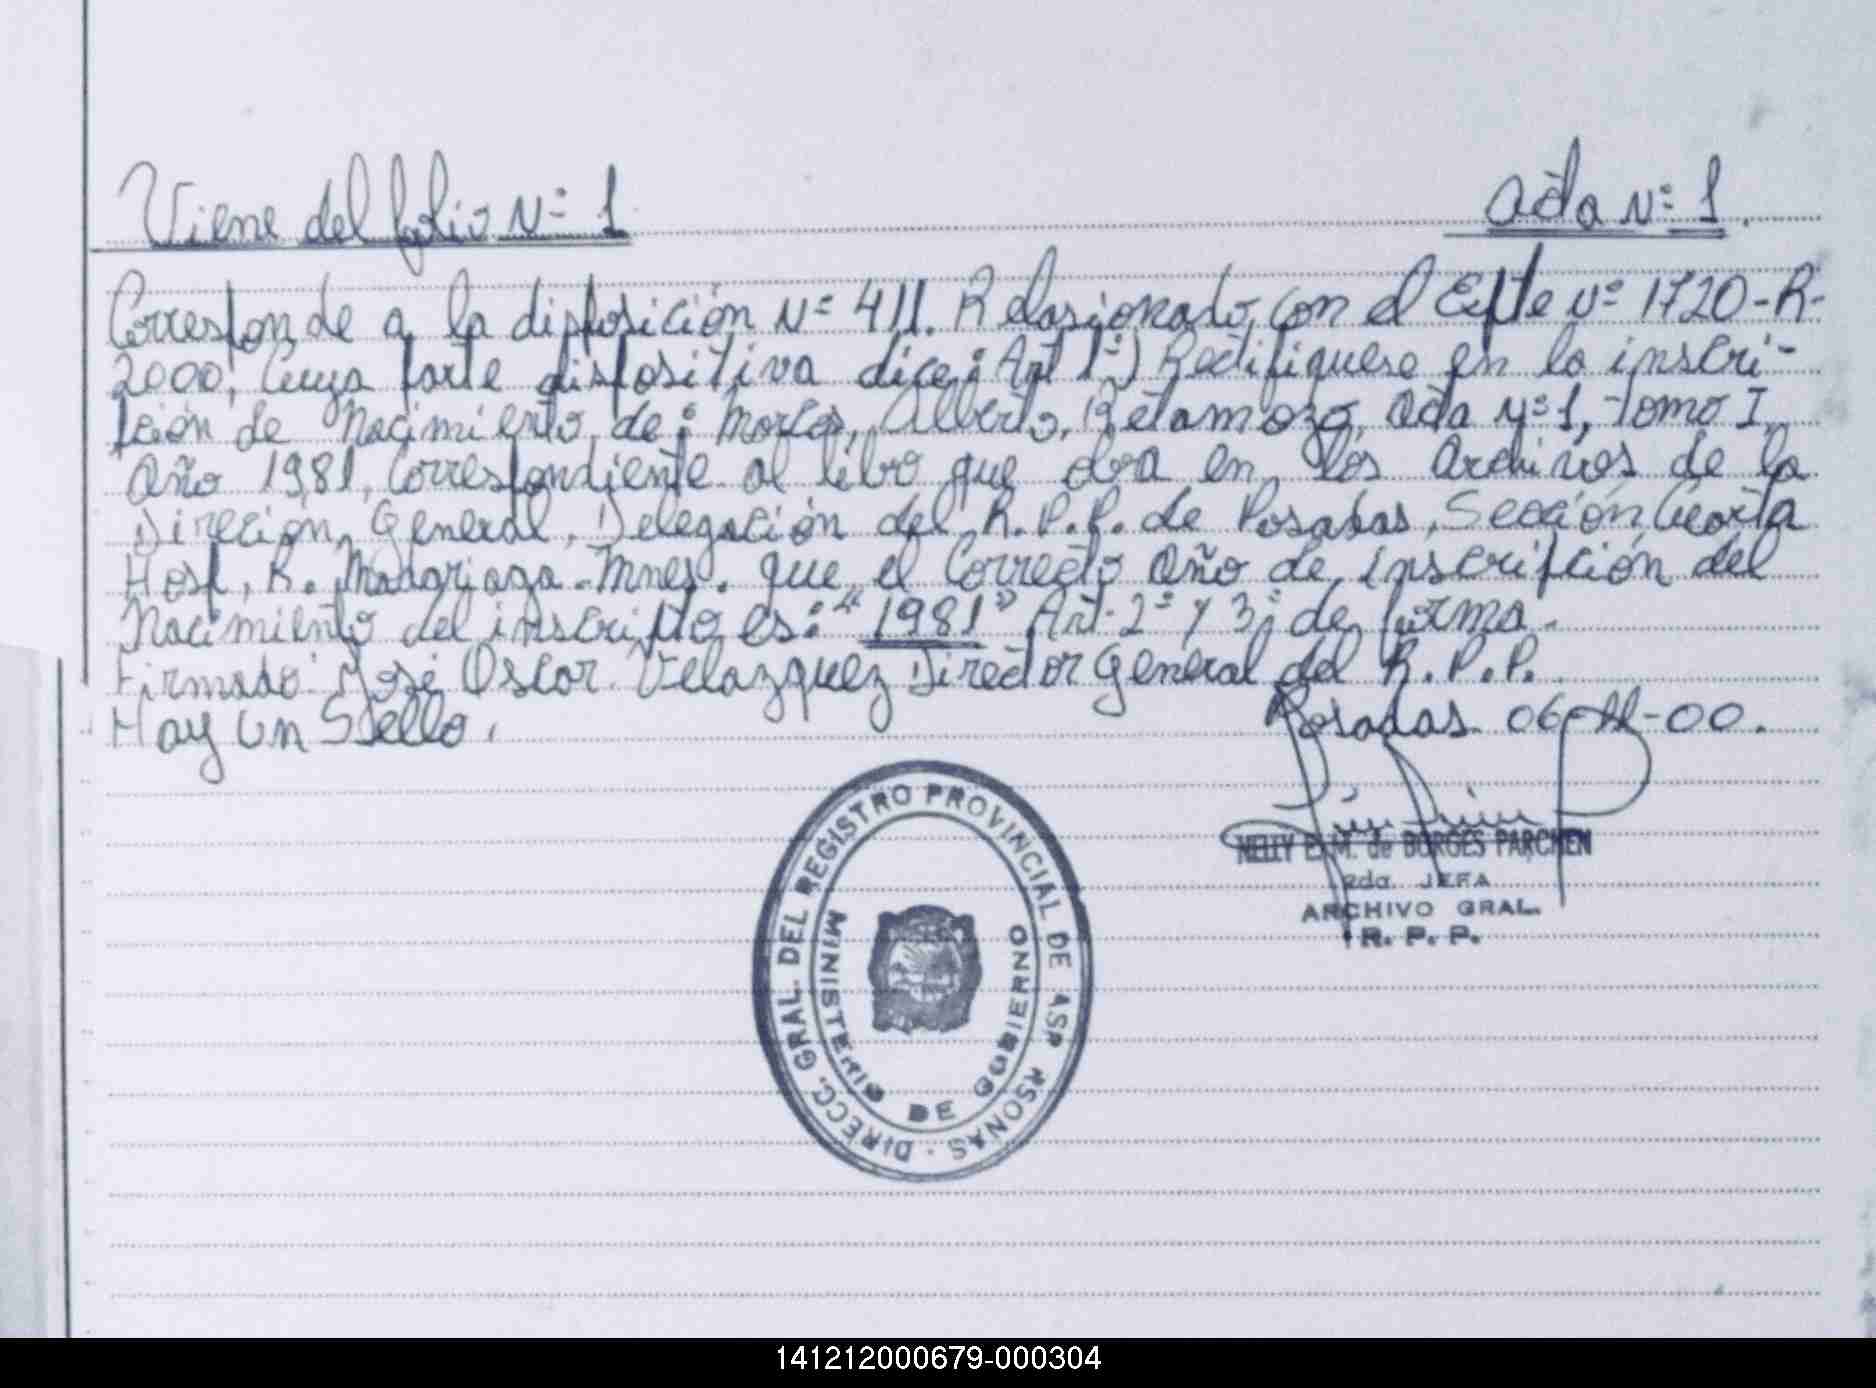 Viene del folio Nº 1. Acta Nº 1.
Corresponde a la disposición Nº 411. Relasionado, con el Expte Nº 1720-R-
2000, Cuya parte dispositiva dice: Art 1º) Rectifiquese en la inscri-
pción de Nacimiento, de: Marcos, Alberto, Retamozo, Acta Nº 1, Tomo I,
Año 1981, Correspondiente al libro que obra en los Archivos de la
Direción, General, Delegación del R.P.P. de Posadas, Sección Cuarta
Hosp, R. Madariaga-Mnes. que el Correcto Año de inscripción del
Nacimiento del inscripto es: "1981" Art. 2º y 3º de forma.
Firmado: José Oscar Velazquez Director General del R.P.P.
Hay Un Sello. Posadas 06-11-00.
NELLY E. M. de BORGES PARCHEN
2da JEFA
ARCHIVO GRAL.
R. P. P.
DIRECC. GRAL. DEL REGISTRO PROVINCIAL DE ASP. RSONAS.
MINISTERIO DE GOBIERNO
141212000679-000304